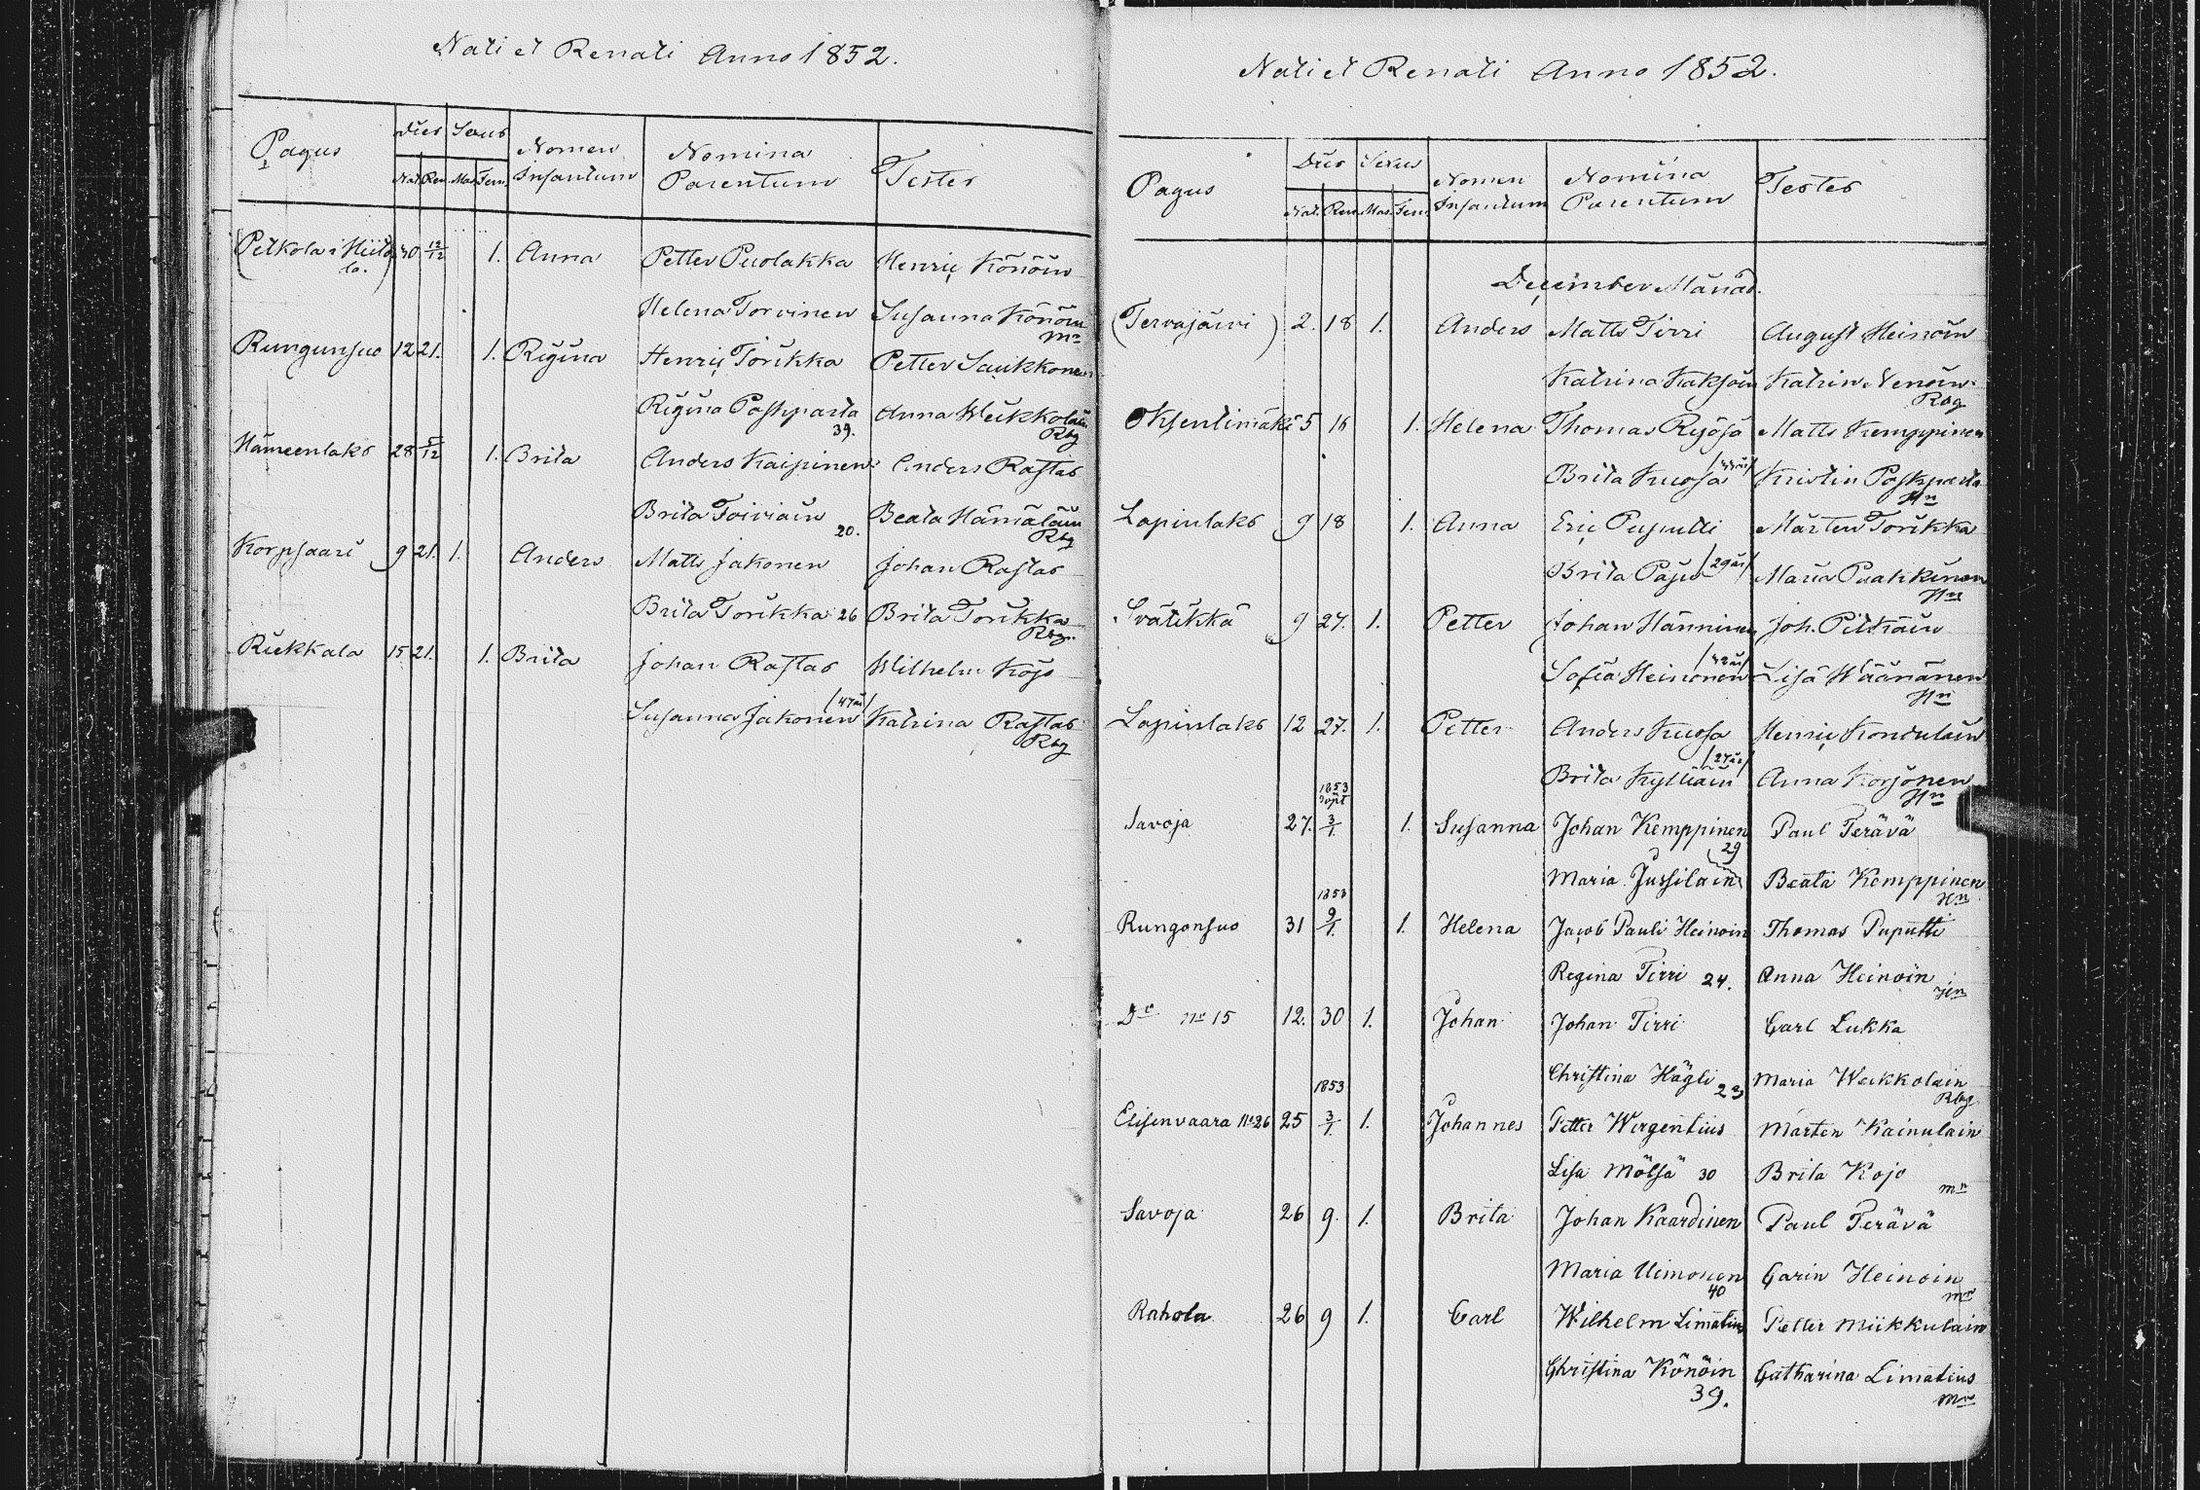 Nati et Renati Anno 1852.
Pagus Dies Sexus Nomen Infantum Nomina Parentum Testes
Nat. Ren. Mas. Fem.
(Petkola i Hiitola.) 30 12/12 1. Anna Petter Puolakka Henric Könöin
Helena Torvinen Susanna Könöin
Mn
Rungunsuo 12 21. 1. Regina Henric Torikka Petter Saukkonen
Regina Poskparta Anna Weikkolain
39. Rbg
Hämeenlaks 28 5/12 1. Brita Anders Kaipinen Anders Rastas
Brita Toiviain Beata Hämäläin
20. Rbg
Korpsaari 9 21. 1. Anders Matts Jakonen Johan Rastas
Brita Torikka 26 Brita Torikka
Rbg.
Riekkala 15. 21. 1. Brita Johan Rastas Wilhelm Kojo
Susanna Jakonen /47 år/ Katrina Rastas
Rbg
Nati et Renati Anno 1852.
Pagus Dies Sexus Nomen Infantum Nomina Parentum Testes
Nat. Ren. Mas. Fem.
December Månad.
(Tervajärvi) 2. 18 1. Anders Matts Tirri August Heinoin
Katrina Kaksoin Katrin Nenoin
Rbg
Oksentimäki 5 18 1. Helena Thomas Ryösä Matts Kemppinen
Brita Kuosa Kristin Poskparta
Hn
Lapinlaks 9 18 1. Anna Eric Puputti Mårten Torikka
Brita Paju /29 år/ Maria Paakkinen
Hn
Svätikkä 9 27. 1. Petter Johan Hänninen Joh. Pitkäin
Sofia Heinonen Lisa Wäänänen
Hn
Lapinlaks 12 27. 1. Petter Anders Kuosa Henric Kondulain
Brita Kylliäin /27 år/ Anna Korjonen
Hn
1853
Savoja 27. 3/1. 1. Susanna Johan Kemppinen Paul Terävä
29
Maria Jussilain Beata Kemppinen
Hn
1853
Rungonsuo 31 9/1. 1. Helena Jacob Pauli Heinoin Thomas Puputti
Regina Tirri 24. Anna Heinoin
Hn
Do No 15 12. 30 1. Johan Johan Tirri Carl Lukka
Christina Hägli 23 Maria Weikkolain
Rbg
1853
Elisenvaara No 26 25 3/1. 1. Johannes Petter Wirgentius Mårten Kainulain
Lisa Mölsä 30 Brita Kojo
Mn
Savoja 26 9. 1. Brita Johan Kaardinen Paul Terävä
Maria Uimonen Carin Heinoin
40 Mn
Rahola 26 9 1. Carl Wilhelm Limatius Petter Miikkulain
Christina Könöin Catharina Limatius
39. Mn